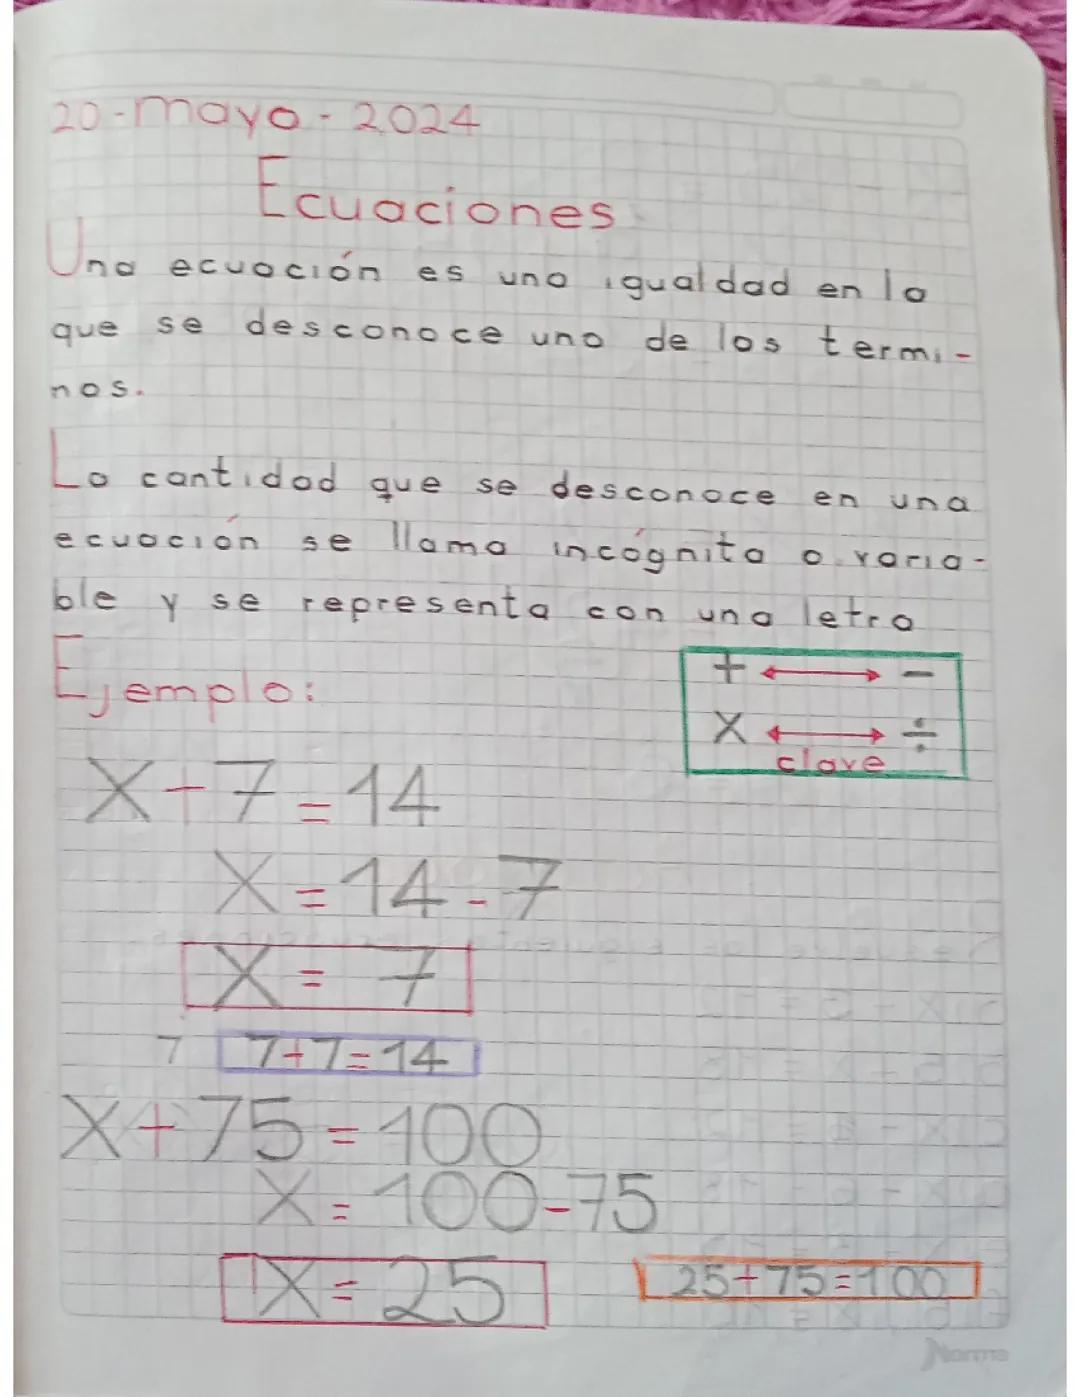 20-mayo-2024
Ecuaciones
Una ecuación es una igualdad en la
que se desconoce uno de los termi-
nos.
La cantidad que se desconoce en una
ecuación se llama incógnita o varia-
ble y se representa con una letra
+ ↔ -
Ejemplo:
X ↔ ÷
clave
X+7=14
X=14-7
X=7
7 7+7=14
X+75=100
X=100-75
X=25 25+75=100
Norma